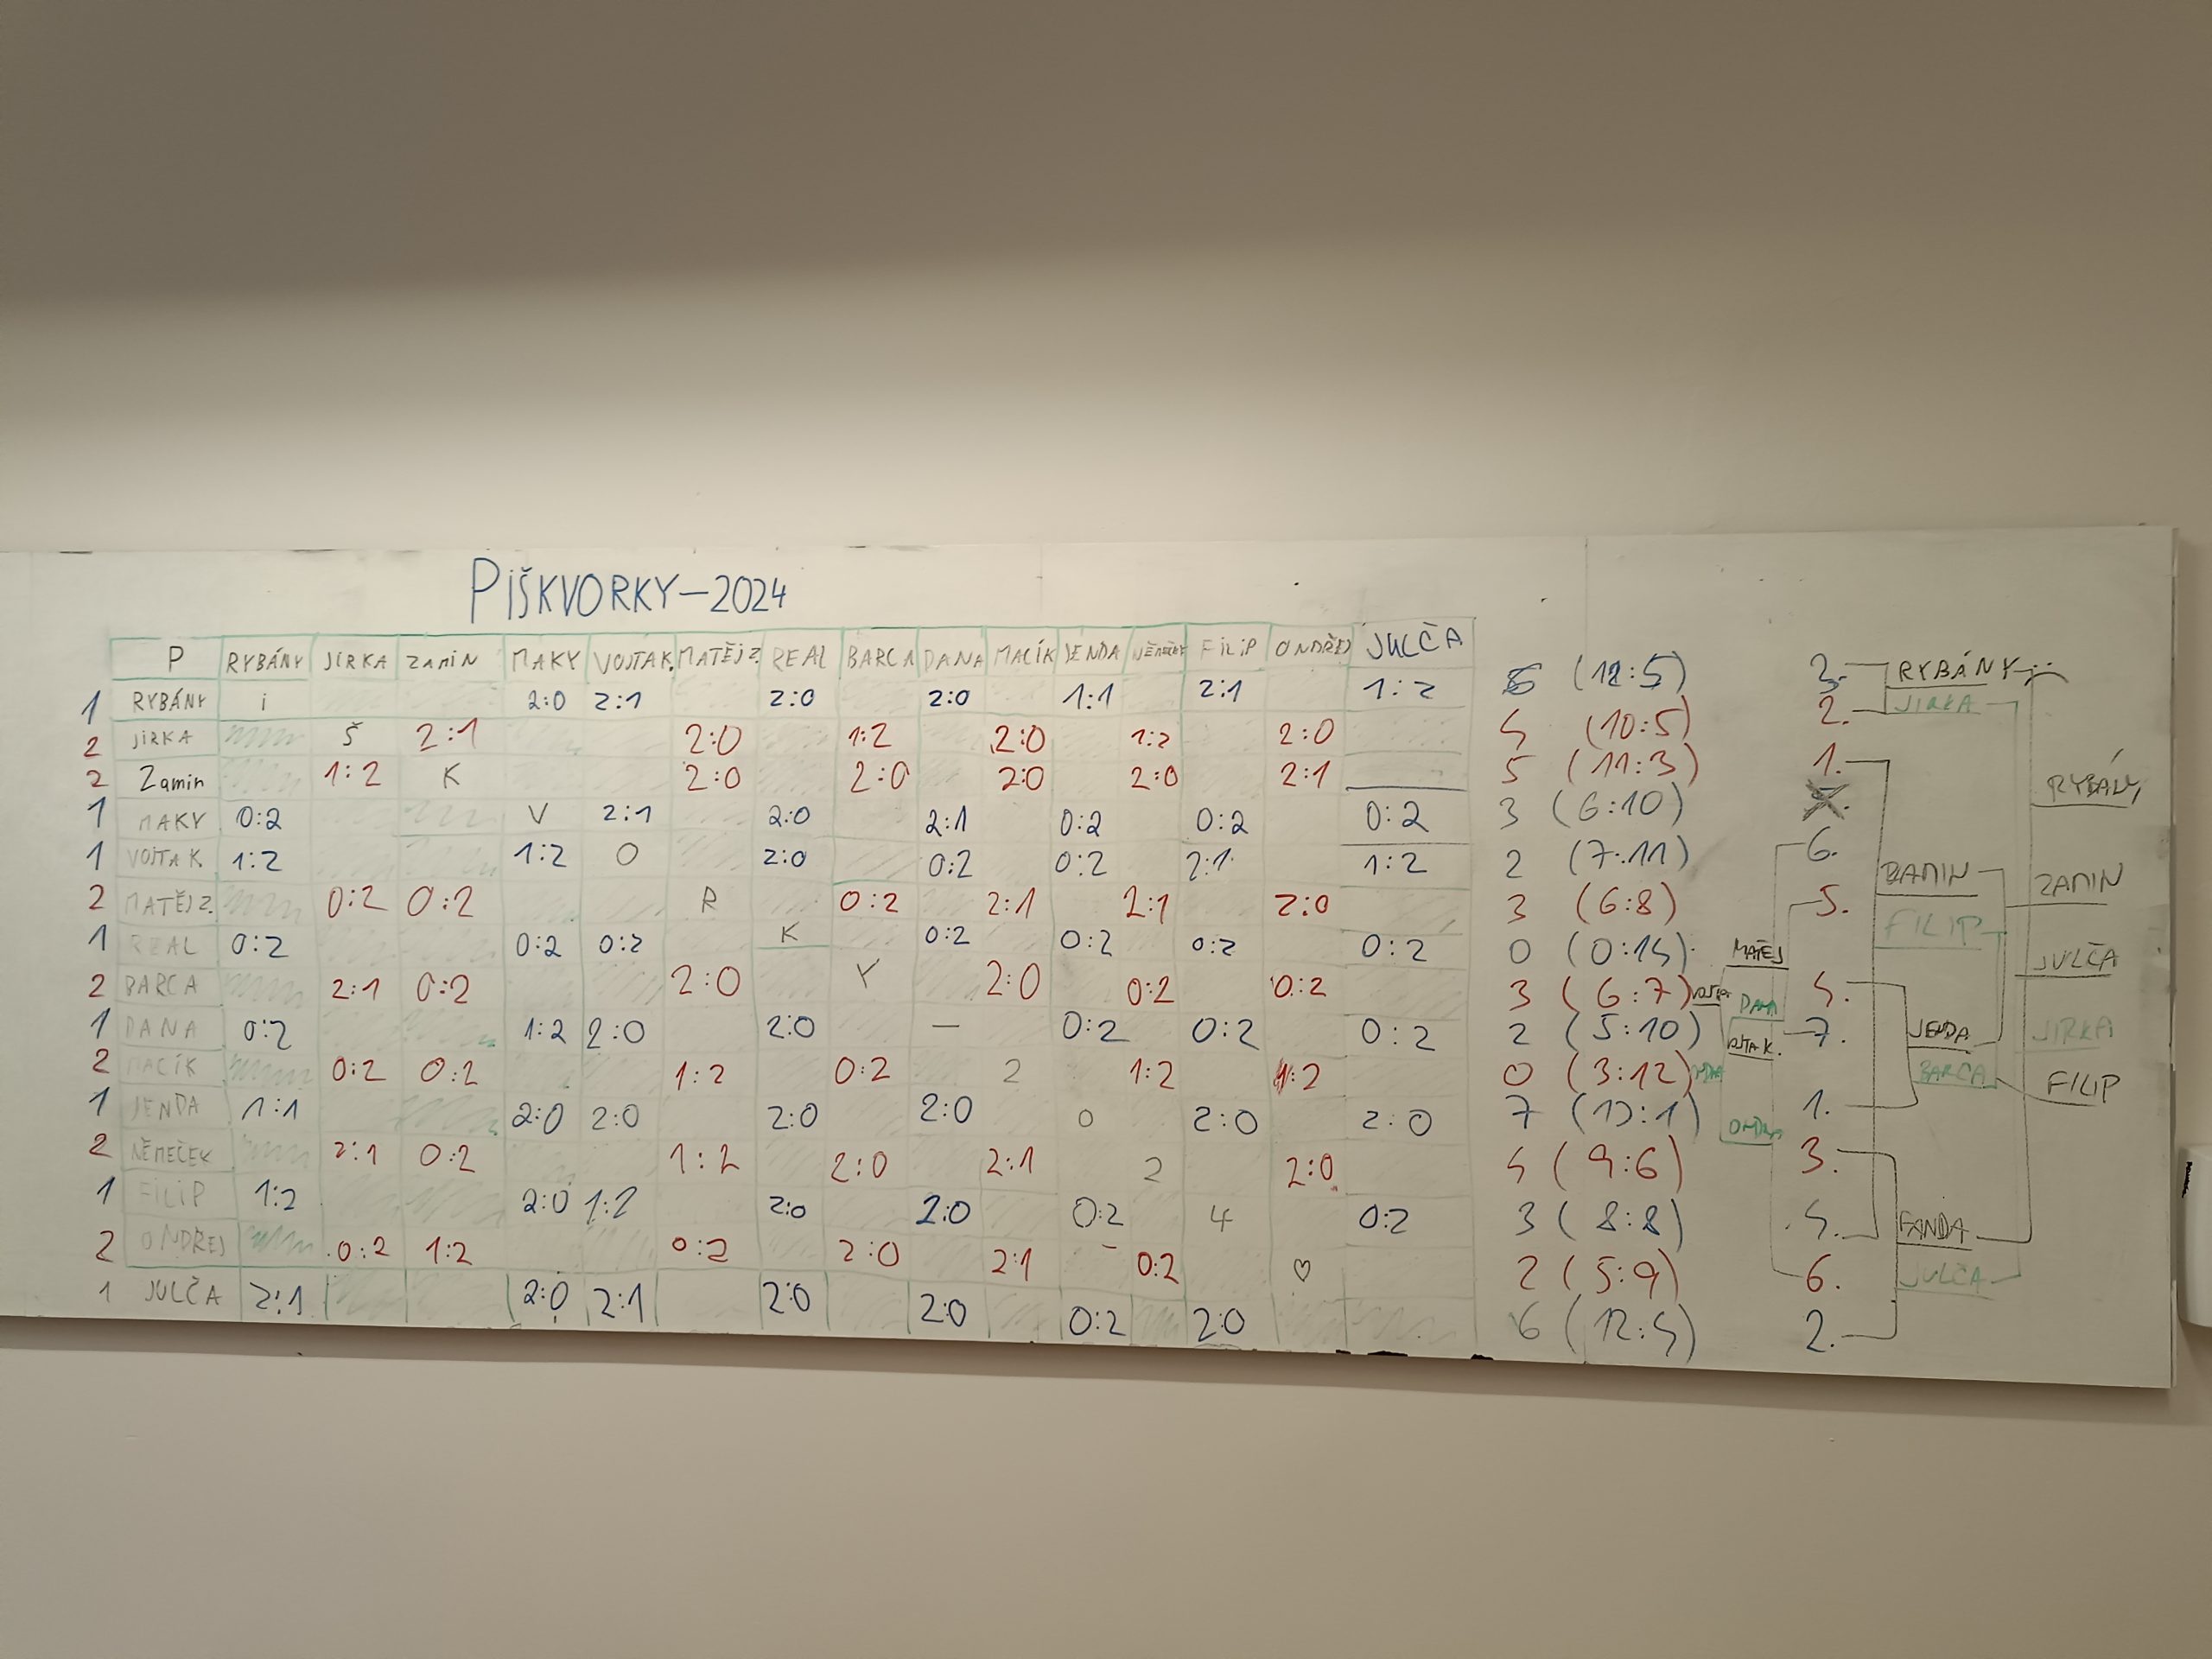 PIŠKVORKY-2024
P RYBÁNY JIRKA ZAMIN MAKY VOJTAK. MATĚJ Z. REAL BARCA DANA MACÍK JENDA NĚMEČEK FILIP ONDŘEJ JULČA
1 RYBÁNY i 2:0 2:1 2:0 2:0 1:1 2:1 1:2 (12:5) RYBÁNY
2 JIRKA Š 2:1 2:0 1:2 2:0 1:2 2:0 4 (10:5) 2. JIRKA
2 Zamin 1:2 K 2:0 2:0 2:0 2:0 2:1 5 (11:3) 1.
1 MAKY 0:2 V 2:1 2:0 2:1 0:2 0:2 0:2 3 (6:10) RYBÁNY
1 VOJTA K. 1:2 1:2 O 2:0 0:2 0:2 2:1 1:2 2 (7:11) 6.
2 MATĚJ Z. 0:2 0:2 R 0:2 2:1 2:1 2:0 3 (6:8) 5. ZAMIN ZAMIN
1 REAL 0:2 0:2 0:2 K 0:2 0:2 0:2 0:2 0 (0:14) MATĚJ FILIP JULČA
2 BARCA 2:1 0:2 2:0 Y 2:0 0:2 0:2 3 (6:7) DANA 4.
1 DANA 0:2 1:2 2:0 2:0 — 0:2 0:2 0:2 2 (5:10) VOJTA K. 7. JENDA JIRKA
2 MACÍK 0:2 0:2 1:2 0:2 2 1:2 1:2 0 (3:12) BARCA FILIP
1 JENDA 1:1 2:0 2:0 2:0 2:0 0 2:0 2:0 7 (13:1) ONDŘEJ 1.
2 NĚMEČEK 2:1 0:2 1:2 2:0 2:1 2 2:0 4 (9:6) 3.
1 FILIP 1:2 2:0 1:2 2:0 2:0 0:2 4 0:2 3 (8:8) 4. FANDA
2 ONDŘEJ 0:2 1:2 0:2 2:0 2:1 0:2 ♡ 2 (5:9) 6. JULČA
1 JULČA 2:1 2:0 2:1 2:0 2:0 0:2 2:0 6 (12:4) 2.